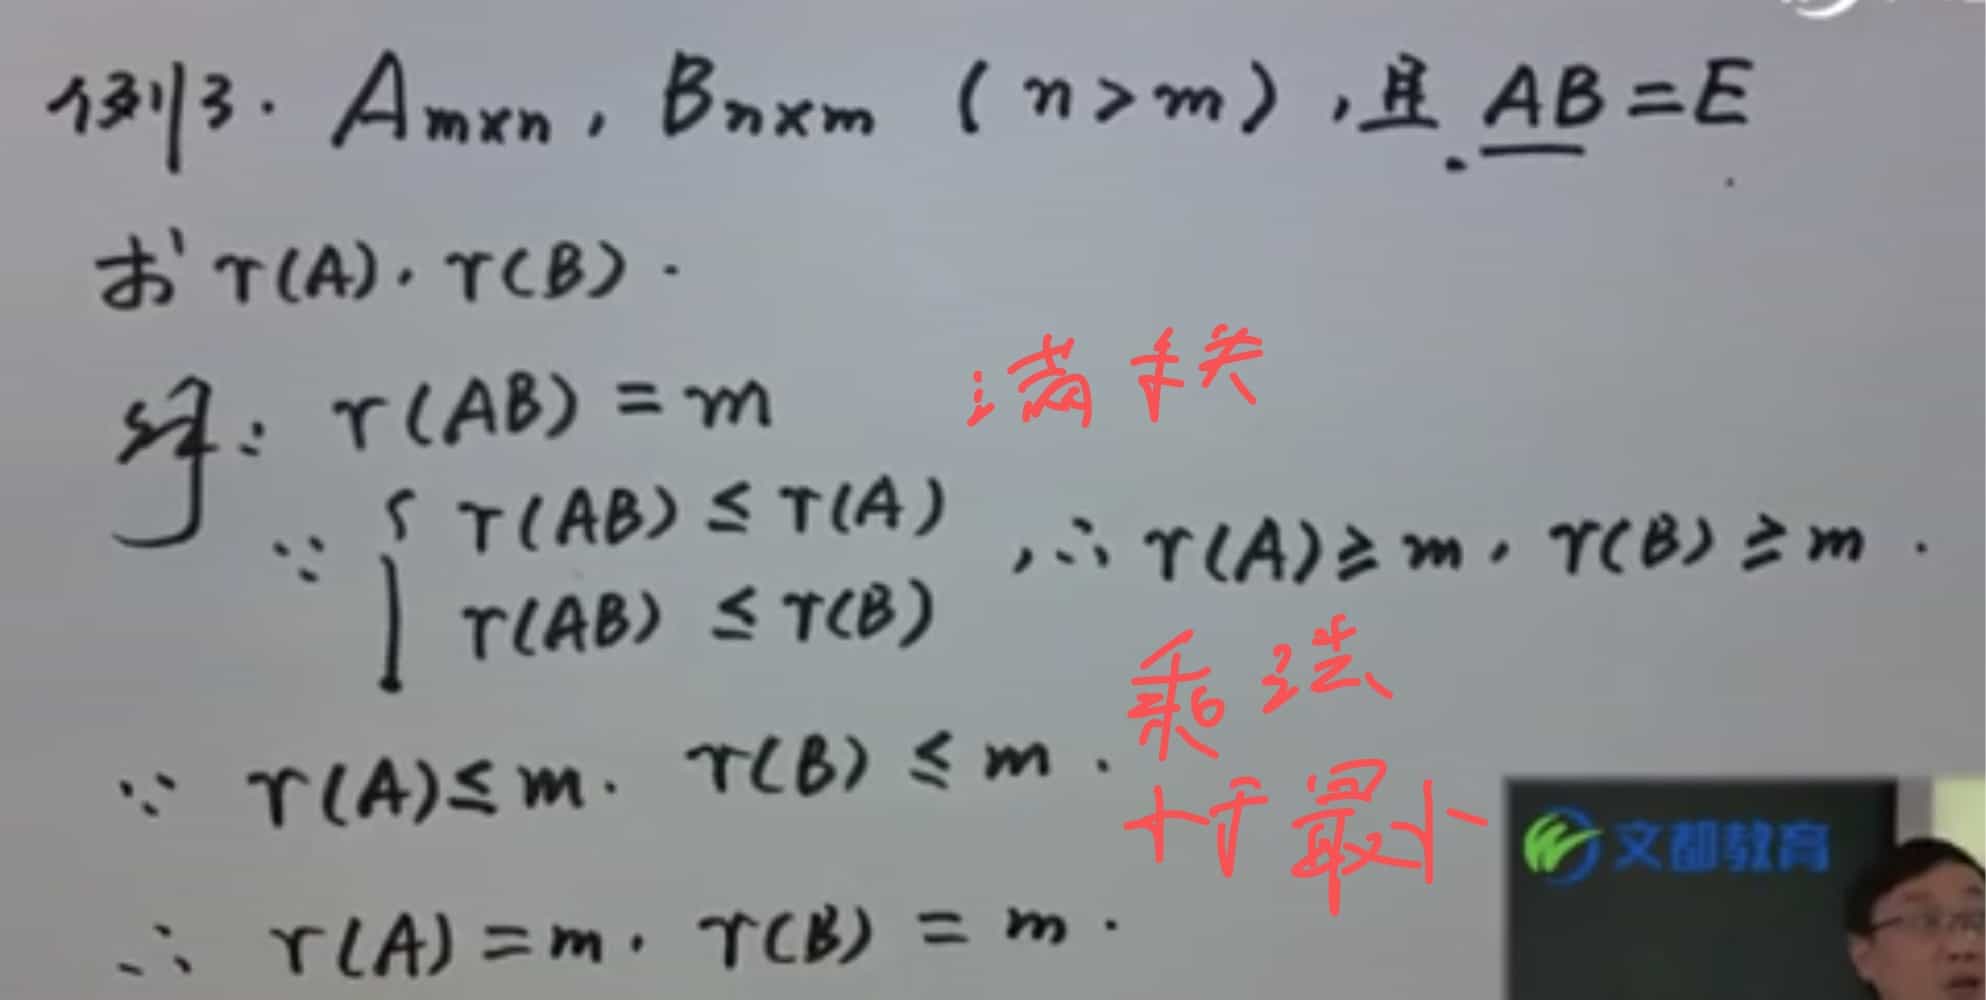 例3. Am×n, Bn×m (n>m), 且 AB=E
求 r(A). r(B).
满秩
解: r(AB)=m
∵ { r(AB) ≤ r(A)
r(AB) ≤ r(B)
, ∴ r(A)≥m, r(B)≥m.
乘法
小于最小
∵ r(A)≤m. r(B)≤m.
∴ r(A)=m. r(B)=m.
文都教育